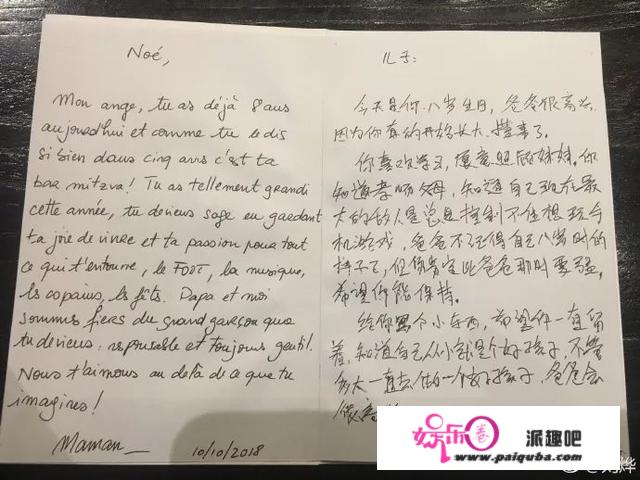 Noé,
Mon ange, tu as déjà 8 ans
aujourd'hui et comme tu le dis
si bien dans cinq ans c'est ta
bar mitzva! Tu as tellement grandi
cette année, tu deviens sage en gardant
ta joie de vivre et ta passion pour tout
ce qui t'entoure, le FOOT, la musique,
les copains, les fêtes. Papa et moi
sommes fiers du grand garçon que
tu deviens: responsable et toujours gentil.
Nous t'aimons au delà de ce que tu
imagines!
Maman
10/10/2018
儿子:
今天是你八岁生日,爸爸很高兴,
因为你真的开始长大、懂事了。
你喜欢学习,愿意照顾妹妹,你
知道孝顺父母,知道自己现在最
大的敌人是总是控制不住想玩手
机游戏,爸爸不记得自己八岁时的
样子了,但你肯定比爸爸那时要强,
希望你能保持。
给你买个小东西,希望你一直留
着,知道自己从小就是个好孩子,不管
多大一直去做一个好孩子,爸爸会
很
娱乐圈 派趣吧
www.paiqube.com